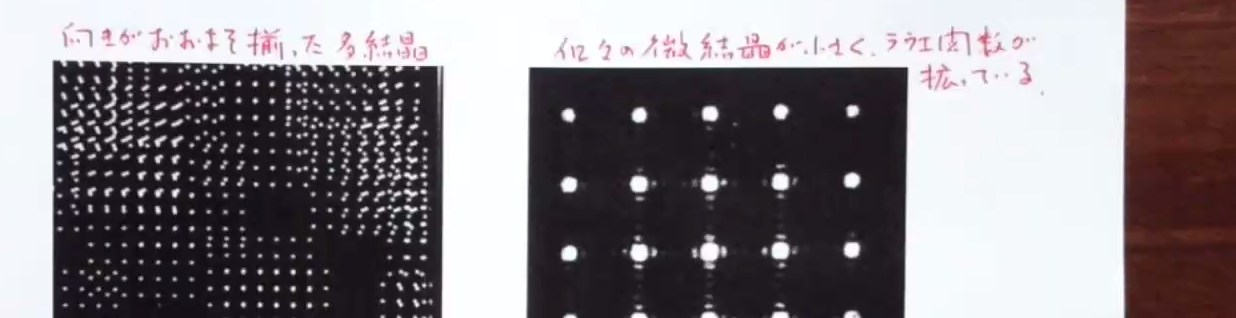 向きがおおよそ揃った多結晶
個々の微結晶が小さく、ラウエ関数が
拡っている。